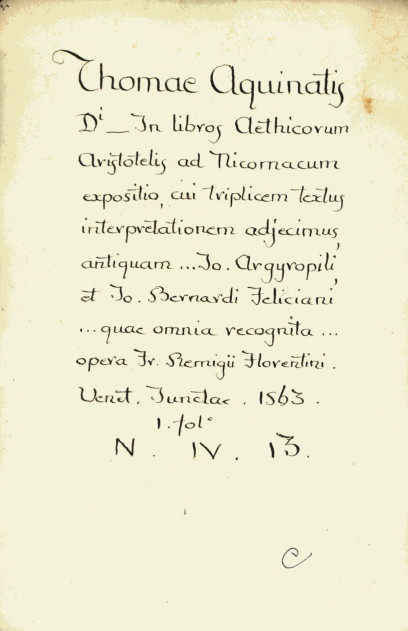 Thomae Aquinatis
Di _ In libros Aethicorum
Aristotelis ad Nicomacum
expositio, cui triplicem textus
interpretationem adjecimus,
antiquam ... Jo. Argyropili,
et Jo. Bernardi Feliciani
... quae omnia recognita ...
opera Fr. Remigii Florentini.
Venet. Junctae. 1563.
1. fol°
N. IV. 13.
C